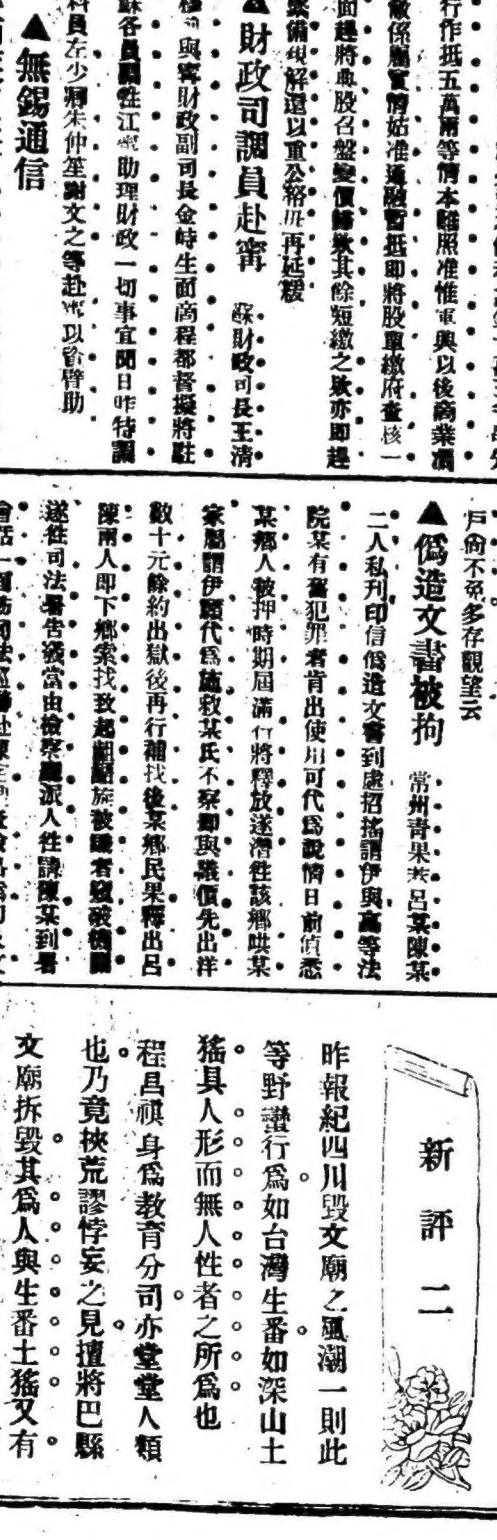 行作抵五萬兩等情本難照准惟軍興以後商業凋
敝係屬實情姑准通融暫抵即將股單繳府查核一
面趕將典股召盤變價歸欵其餘短繳之欵亦即趕
緊備現解還以重公帑毋再延緩
▲財政司調員赴寗 蘇財政司長王清
穆 與寗財政副司長金時生面商程都督擬將駐
蘇各員調往江寗助理財政一切事宜聞日昨特調
科員左少 朱仲笙謝文之等赴寗以資臂助
▲無錫通信
戶尙不免多存觀望云
▲僞造文書被拘 常州靑果巷呂某陳某
二人私刊印信僞造文書到處招搖謂伊與高等法
院某有舊犯罪者肯出使用可代爲說情日前偵悉
某鄉人被押時期屆滿行將釋放遂潛往該鄉哄某
家屬謂伊願代爲施救某氏不察卽與議價先出洋
數十元餘約出獄後再行補找後某鄉民果釋出呂
陳兩人即下鄉索找致起齟齬旋被識者窺破機關
遂往司法署吿發當由檢察廳派人往請陳某到署
新評二
昨報紀四川毀文廟之風潮一則此
等野蠻行爲如台灣生番如深山土
猺具人形而無人性者之所爲也
程昌祺身爲敎育分司亦堂堂人類
也乃竟挾荒謬悖妄之見擅將巴縣
文廟拆毀其爲人與生番土猺又有